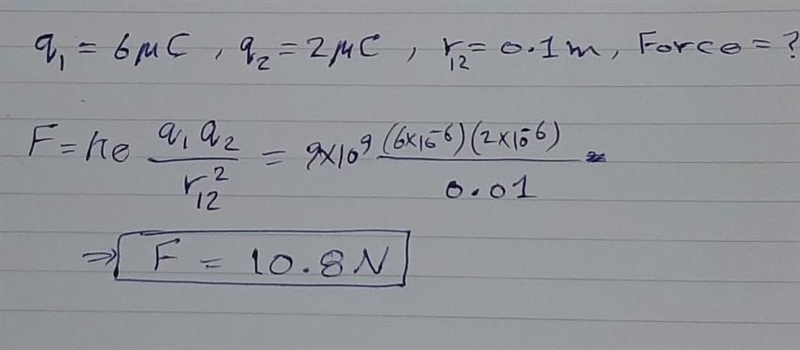 q₁ = 6μC , q₂ = 2μC , r₁₂ = 0.1m , Force = ?
F = ke q₁ q₂ / r₁₂² = 9×10⁹ (6×10⁻⁶)(2×10⁻⁶) / 0.01 =
⇒ F = 10.8N